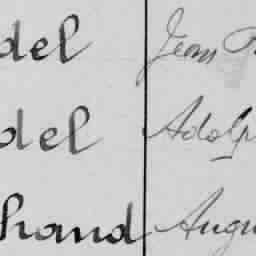 del Jean
del Adolp
hand Augu